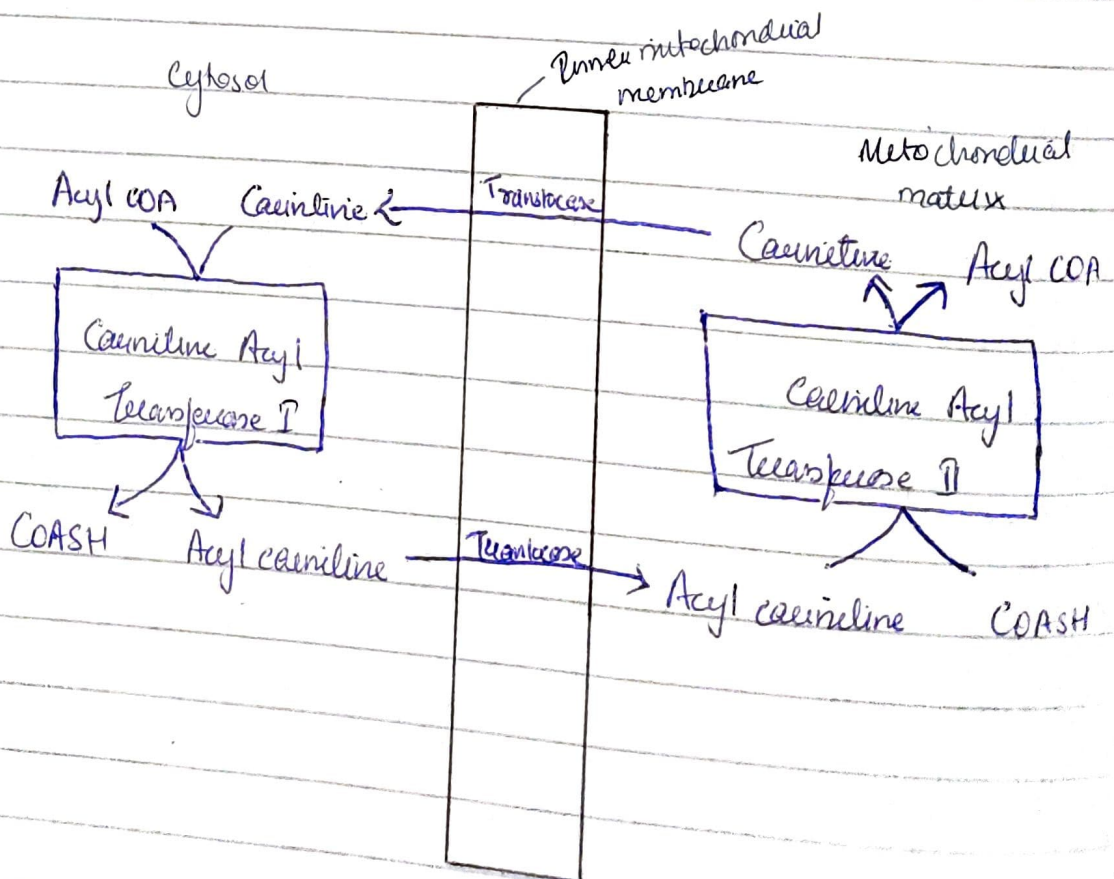 Cytosol
Inner mitochondrial
membrane
Mitochondrial
matrix
Acyl COA Carnitine
Translocase
Carnitine Acyl COA
Carnitine Acyl
Transferase I
Carnitine Acyl
Transferase II
COASH Acyl carnitine
Translocase
Acyl carnitine COASH